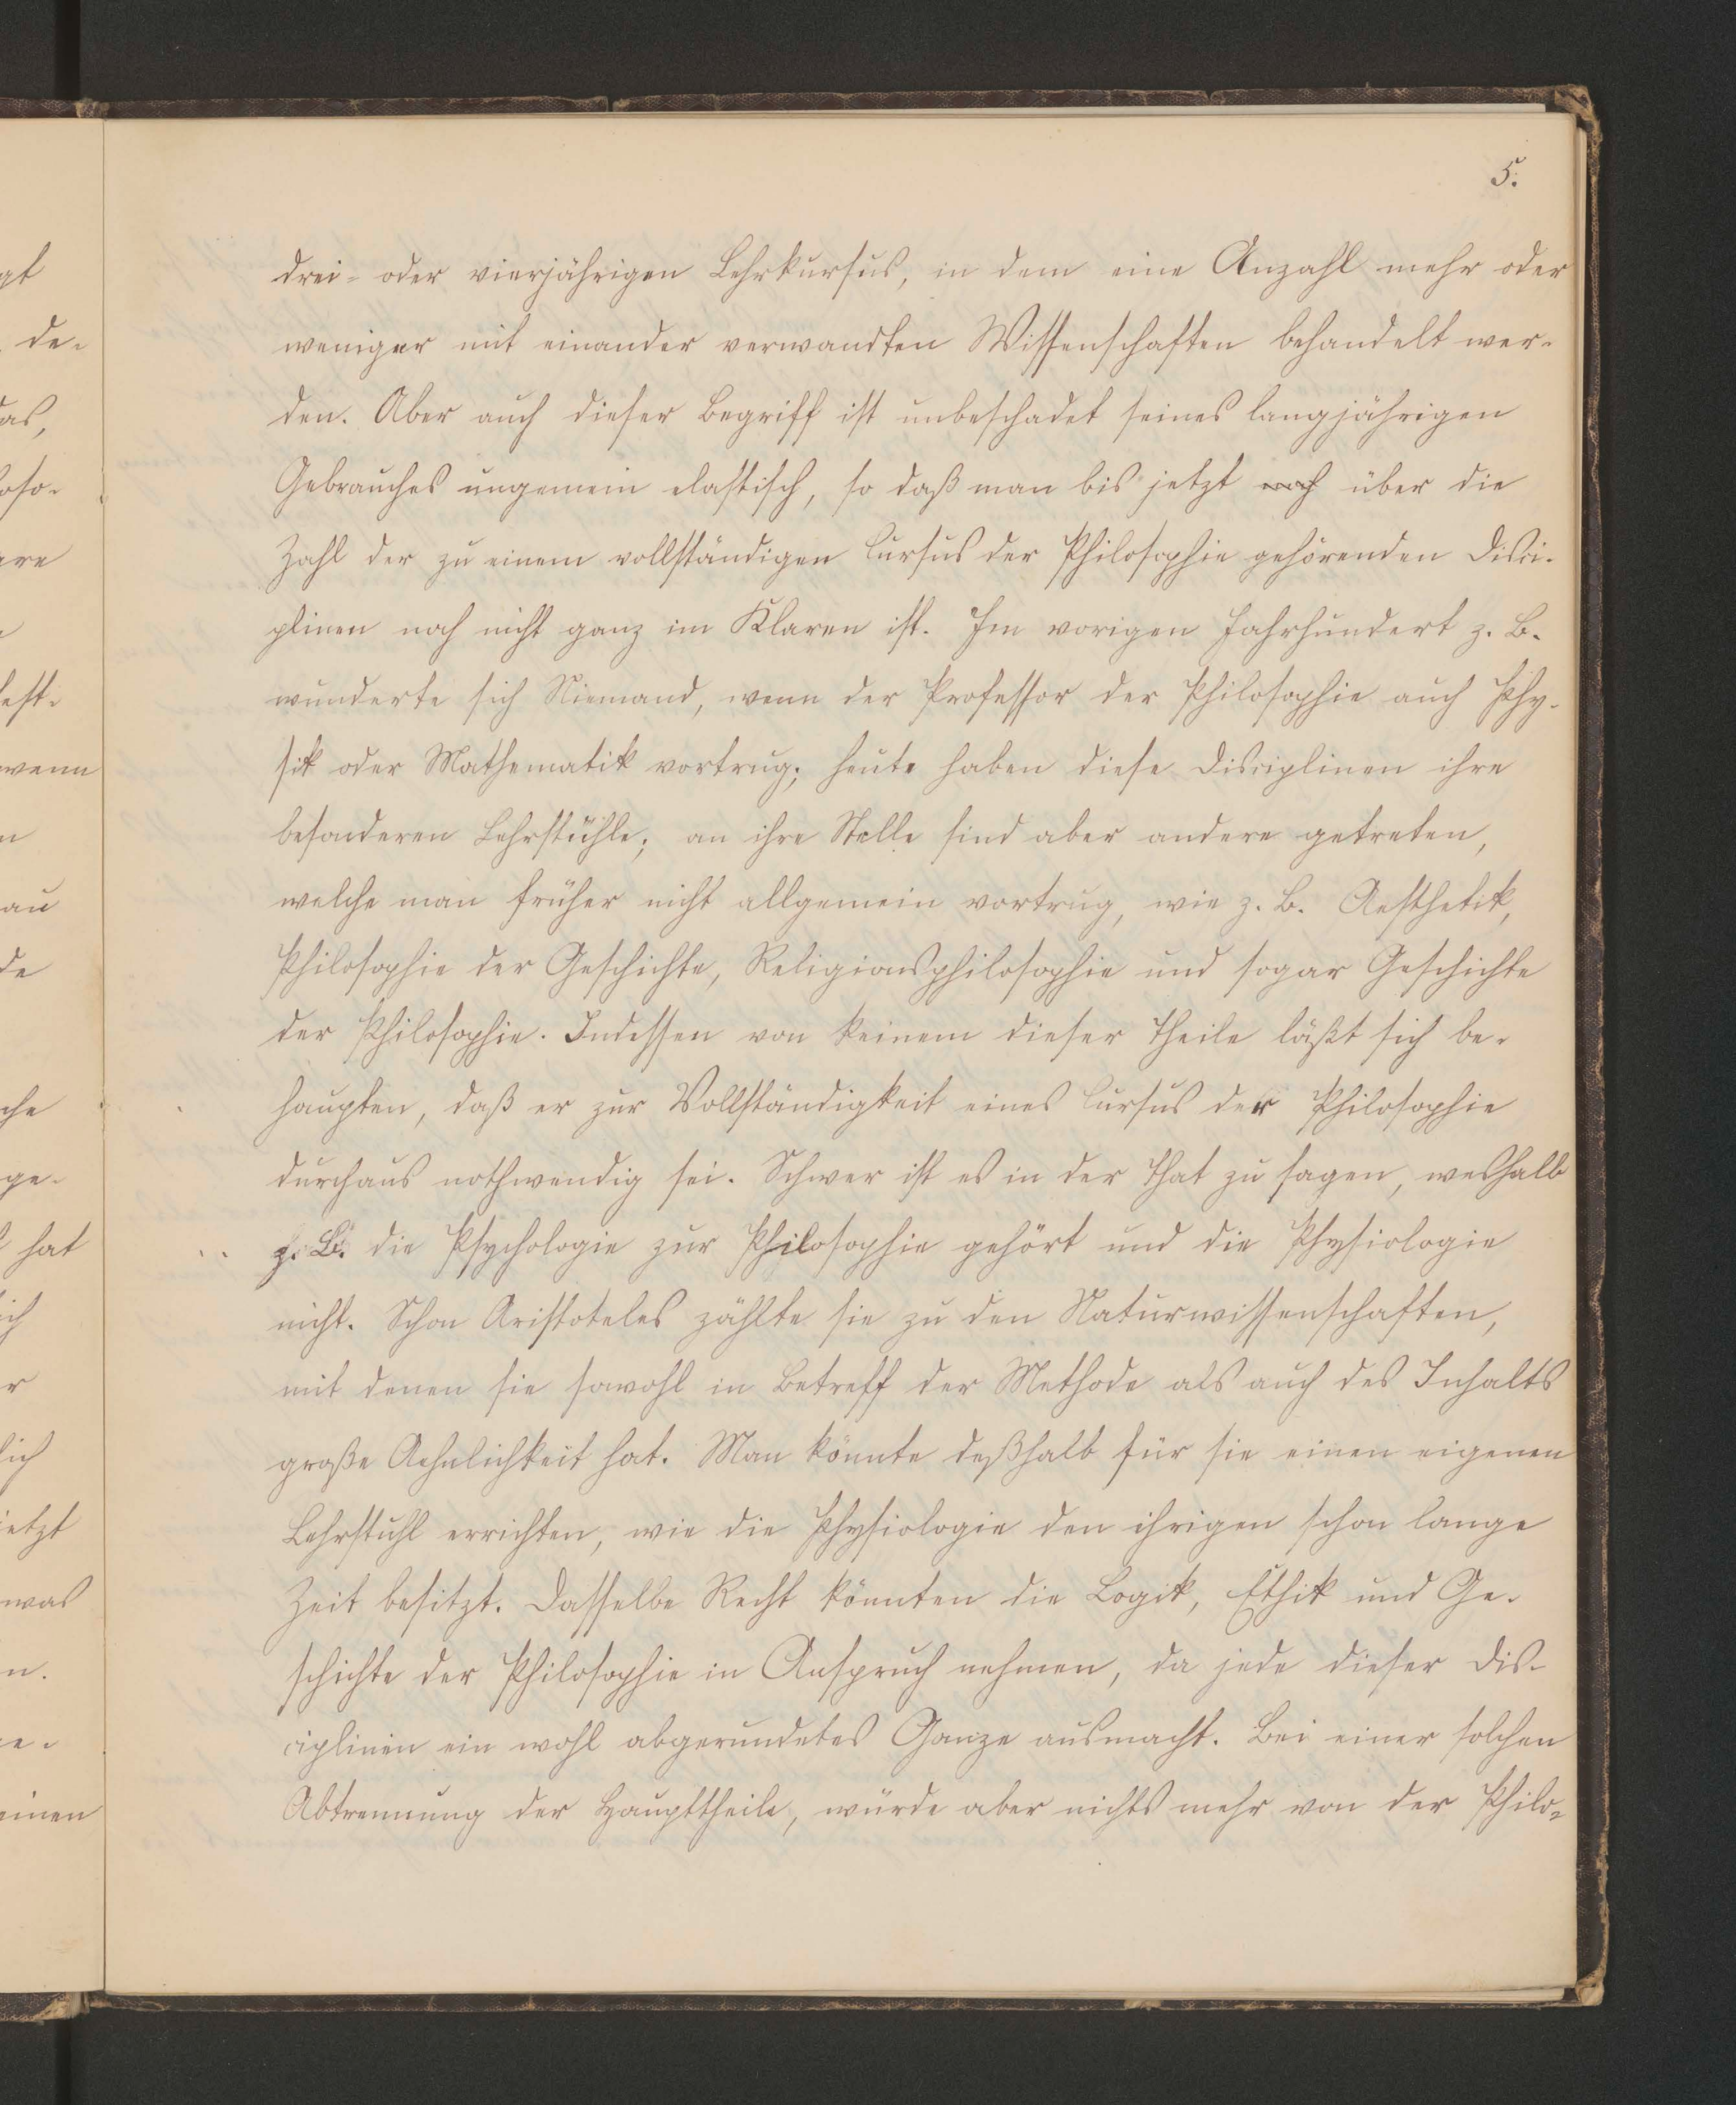 5.
drei- oder vierjährigen Lehrkursus, in dem eine Anzahl mehr oder
weniger mit einander verwandten Wissenschaften behandelt wer-
den. Aber auch dieser Begriff ist unbeschadet seines langjährigen
Gebrauches ungemein elastisch, so daß man bis jetzt noch über die
Zahl der zu einem vollständigen Cursus der Philosophie gehörenden Disci-
plinen noch nicht ganz im Klaren ist. Im vorigen Jahrhundert z. B.
wunderte sich Niemand, wenn der Professor der Philosophie auch Phy-
sik oder Mathematik vortrug; heute haben diese Disciplinen ihre
besonderen Lehrstühle; an ihre Stelle sind aber andere getreten,
welche man früher nicht allgemein vortrug, wie z. B. Aesthetik,
Philosophie der Geschichte, Religionsphilosophie und sogar Geschichte
der Philosophie. Indessen von keinem dieser Theile läßt sich be-
haupten, daß er zur Vollständigkeit eines Cursus der Philosophie
durchaus nothwendig sei. Schwer ist es in der That zu sagen, weshalb
z. B. die Psychologie zur Philosophie gehört und die Physiologie
nicht. Schon Aristoteles zählte sie zu den Naturwissenschaften,
mit denen sie sowohl in Betreff der Methode als auch des Inhalts
große Aehnlichkeit hat. Man könnte deßhalb für sie einen eigenen
Lehrstuhl errichten, wie die Physiologie den ihrigen schon lange
Zeit besitzt. Dasselbe Recht könnten die Logik, Ethik und Ge-
schichte der Philosophie in Anspruch nehmen, da jede dieser Dis-
ciplinen ein wohl abgerundetes Ganze ausmacht. Bei einer solchen
Abtrennung der Haupttheile, würde aber nichts mehr von der Philo-